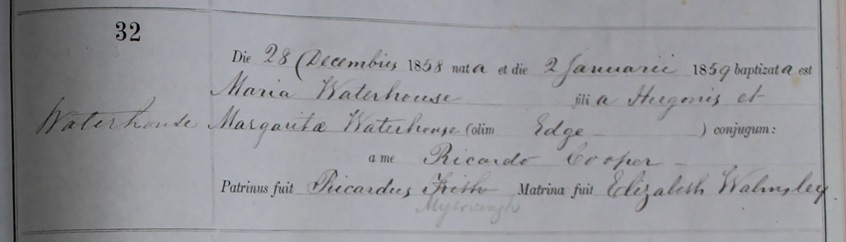 32
Die 28 Decembris 1858 nata et die 2 Januarii 1859 baptizata est
Maria Waterhouse filia Hugonis et
Waterhouse Margaritæ Waterhouse (olim Edge) conjugum:
a me Ricardo Cooper
Patrinus fuit Ricardus Matrina fuit Elizabeth Walmsley